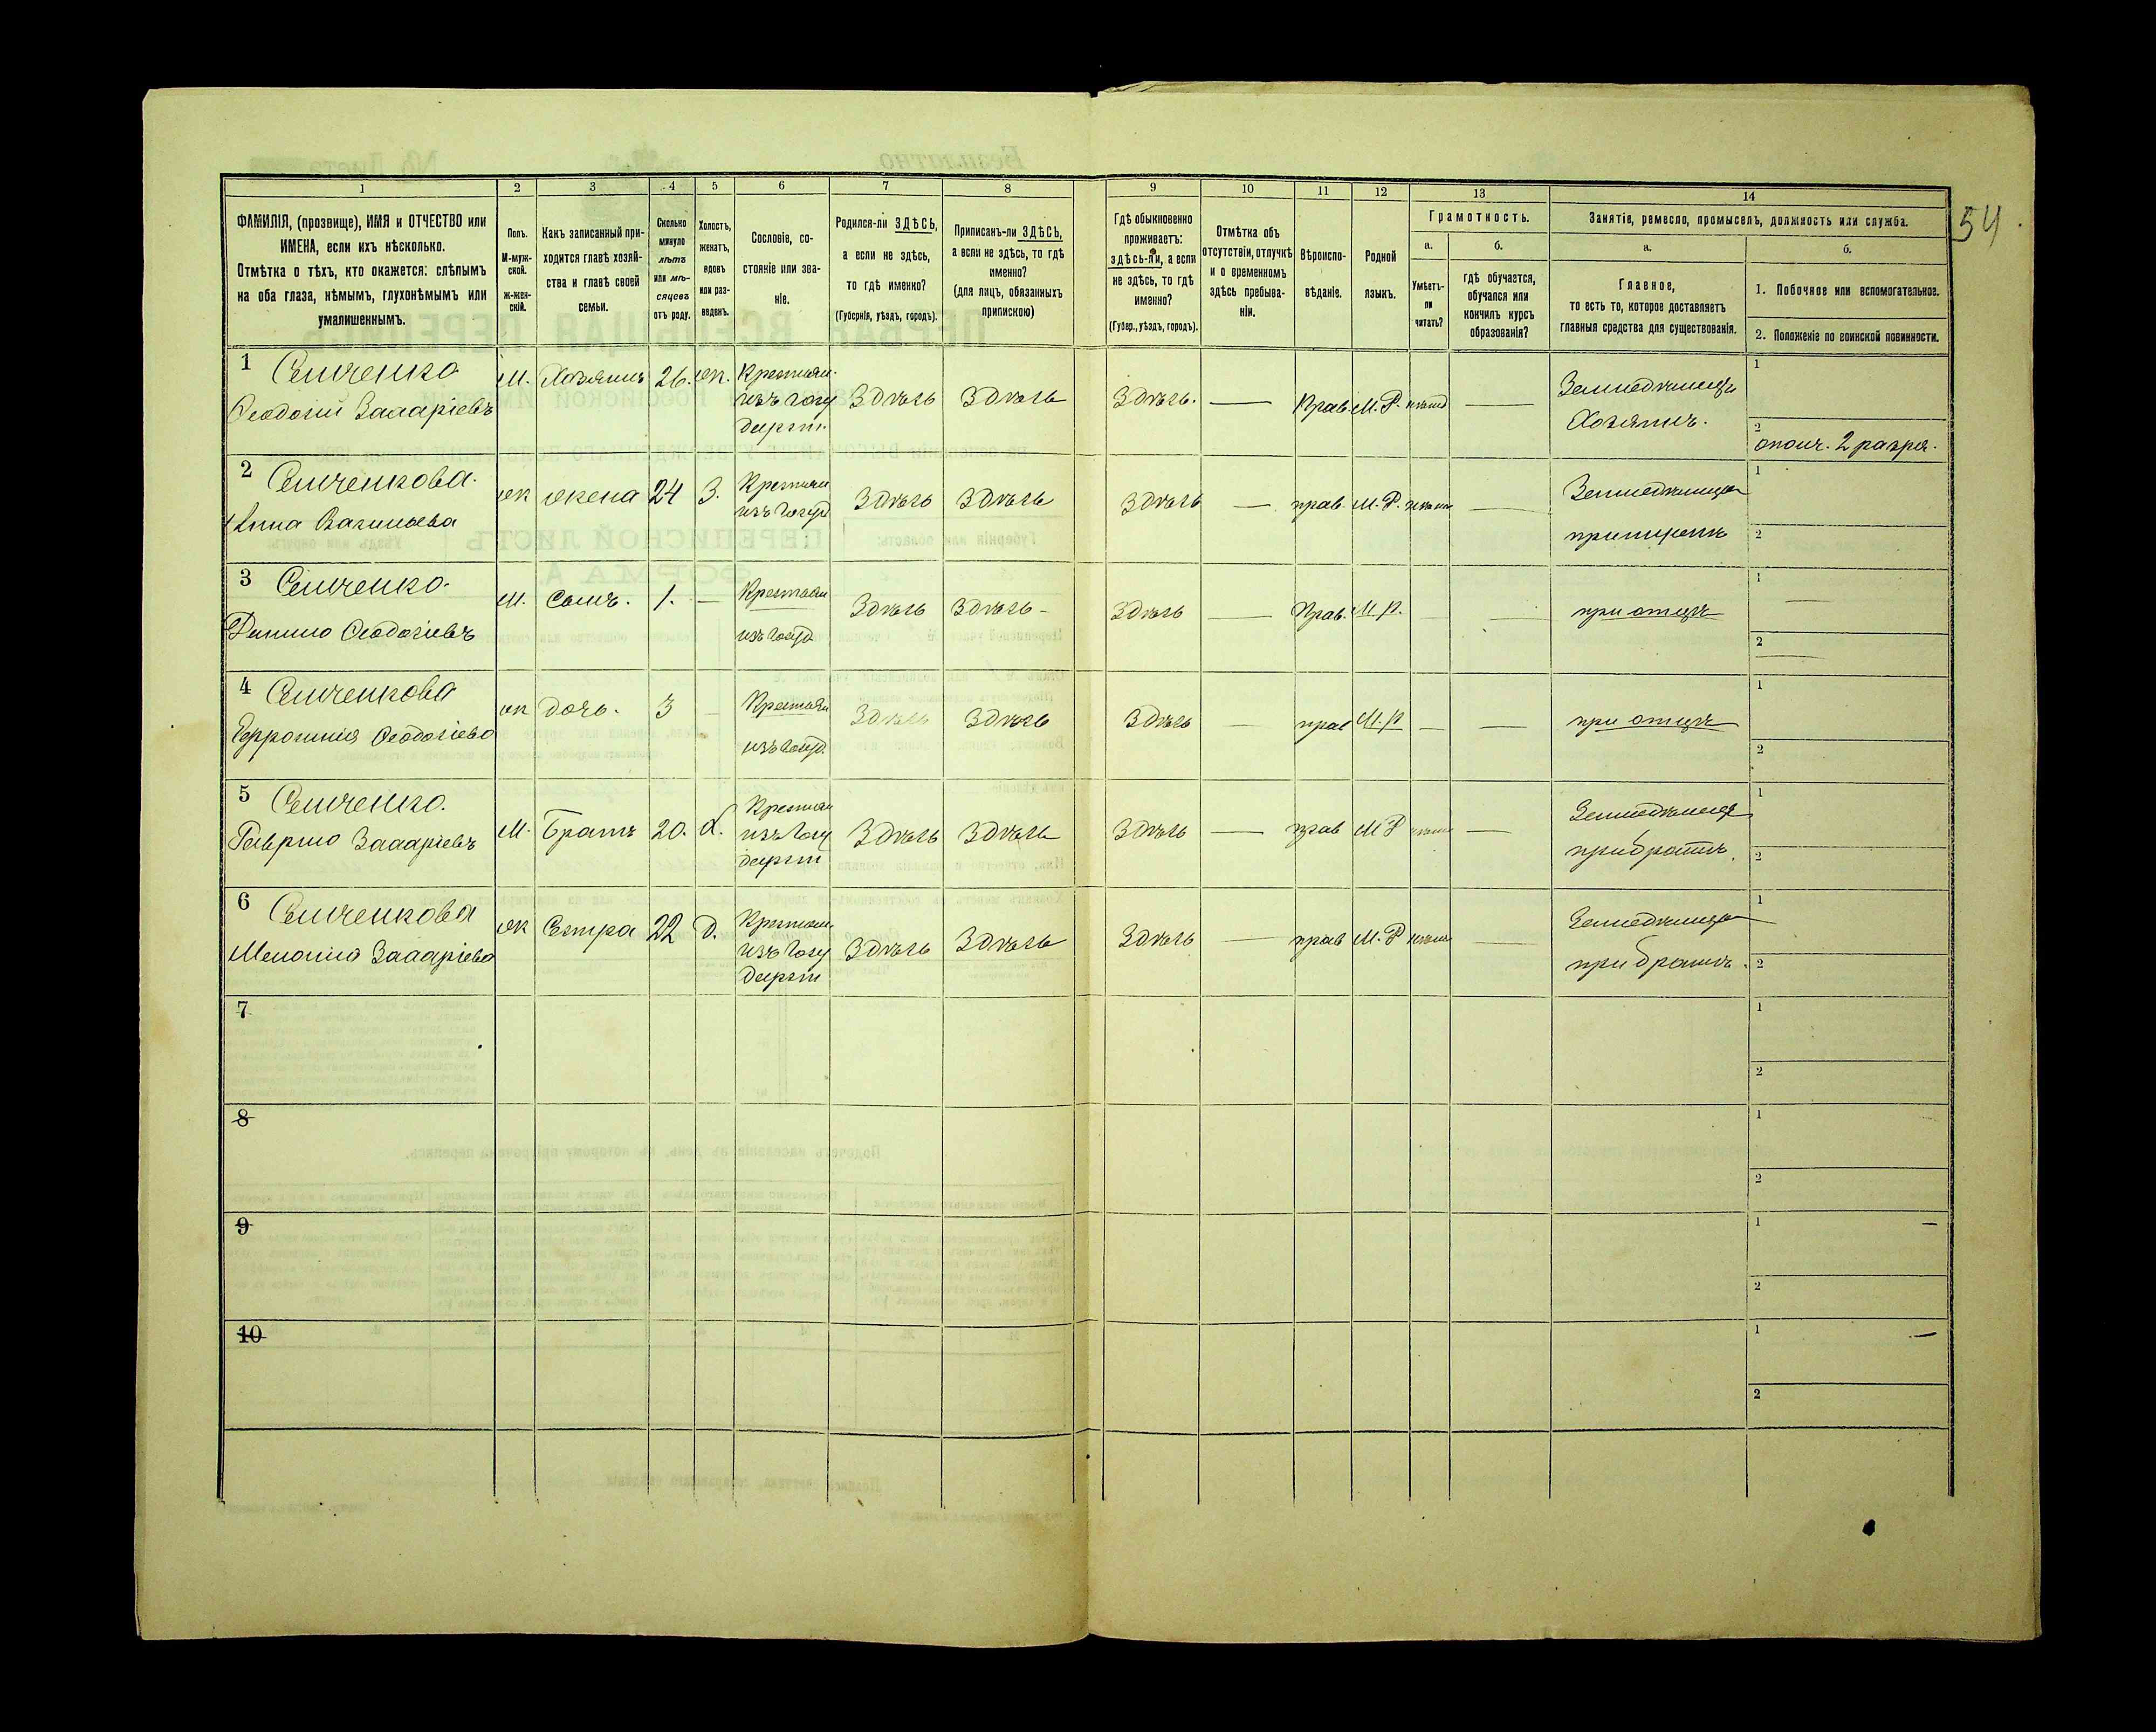 54
1 2 3 4 5 6 7 8 9 10 11 12 13 14
ФАМИЛІЯ, (прозвище), ИМЯ и ОТЧЕСТВО или
ИМЕНА, если ихъ нѣсколько.
Отмѣтка о тѣхъ, кто окажется: слѣпымъ
на оба глаза, нѣмымъ, глухонѣмымъ или
умалишеннымъ.
Полъ.
М-муж-
ской.
Ж-жен-
скій.
Какъ записанный при-
ходится главѣ хозяй-
ства и главѣ своей
семьи.
Сколько
минуло
лѣтъ
или мѣ-
сяцевъ
отъ роду.
Холостъ,
женатъ,
вдовъ
или раз-
веденъ.
Сословіе, со-
стояніе или зва-
ніе.
Родился-ли ЗДѢСЬ,
а если не здѣсь,
то гдѣ именно?
(Губернія, уѣздъ, городъ).
Приписанъ-ли ЗДѢСЬ,
а если не здѣсь, то гдѣ
именно?
(для лицъ, обязанныхъ
припискою)
Гдѣ обыкновенно
проживаетъ:
здѣсь-ли, а если
не здѣсь, то гдѣ
именно?
(Губер., уѣздъ, городъ).
Отмѣтка объ
отсутствіи, отлучкѣ
и о временномъ
здѣсь пребыва-
ніи.
Вѣроиспо-
вѣданіе.
Родной
языкъ.
Грамотность.
а.
Умѣетъ-
ли
читать?
б.
гдѣ обучается,
обучался или
кончилъ курсъ
образованія?
Занятіе, ремесло, промыселъ, должность или служба.
а.
Главное,
то есть то, которое доставляетъ
главныя средства для существованія.
б.
1. Побочное или вспомогательное.
2. Положеніе по воинской повинности.
1 Семченко
Феодосій Захаріевъ
М. Хозяинъ 26. ж. Крестьян.
изъ госу
дарст.
Здѣсь Здѣсь Здѣсь. — Прав. М. Р. —
Хозяинъ.
1
2
ополч. 2 разря.
2 Семченкова
Анна Васильева
ж жена 24 З. Крестьян
изъ госуд
Здѣсь Здѣсь Здѣсь — прав. М. Р. —
1
2
3 Семченко
Данило Феодосіевъ
М. Сынъ. 1. — Крестьян
изъ госуд
Здѣсь Здѣсь Здѣсь — Прав. М. р. — — при отцѣ
1 —
2 —
4 Семченкова
Евфросинія Феодосіева
ж дочь. 3 — Крестьян
изъ госуд.
Здѣсь Здѣсь Здѣсь — прав М. р — — при отцѣ
1
2
5 Семченко.
Гаврило Захаріевъ
М. Братъ 20. Х. Крестьян
изъ госу
дарст
Здѣсь Здѣсь Здѣсь — прав М Р —
при братѣ.
1
2
6 Семченкова
Меланія Захаріева
ж Сестра 22 Д. Крестьян.
изъ госу
дарст
Здѣсь Здѣсь Здѣсь — прав М. Р —
при братѣ.
1
2
7
1
2
8
1
2
9
1 —
2
10
1 —
2